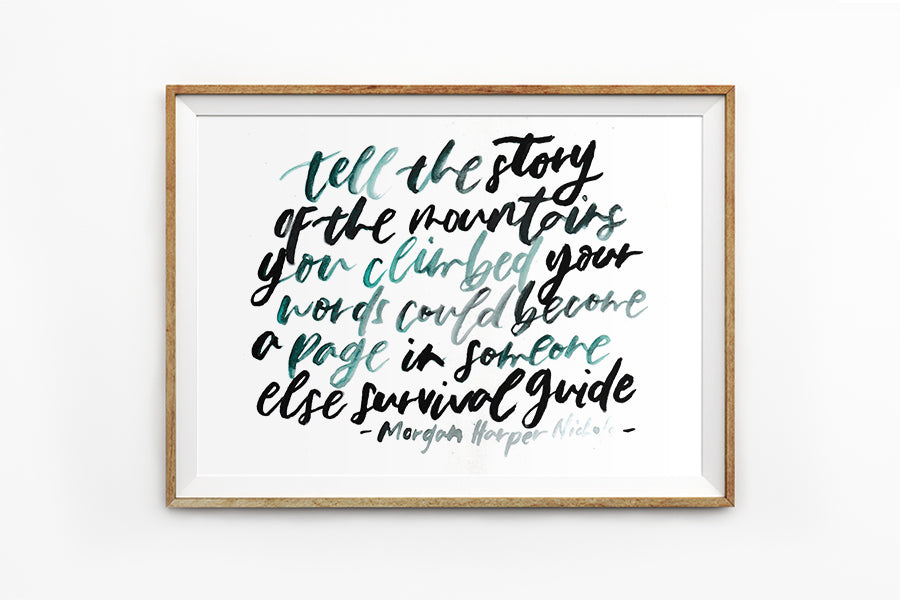 tell the story
of the mountains
you climbed your
words could become
a page in someone
else survival guide
- Morgan Harper Nichols -